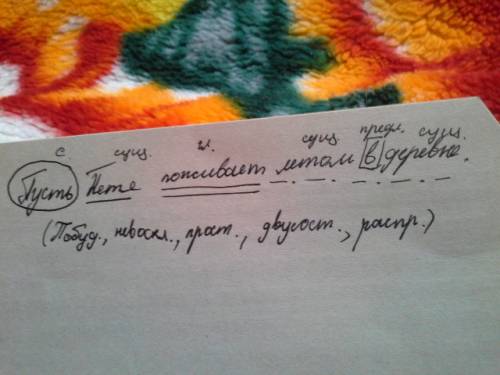 с сущ. гл. сущ. предл. сущ.
Пусть Пете поживает летом в деревне.
(Побуд., невоскл., прост., двусост., распр.)